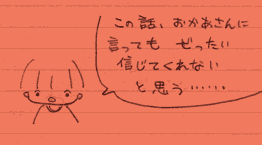 この話、おかあさんに
言っても ぜったい
信じてくれない
と思う……